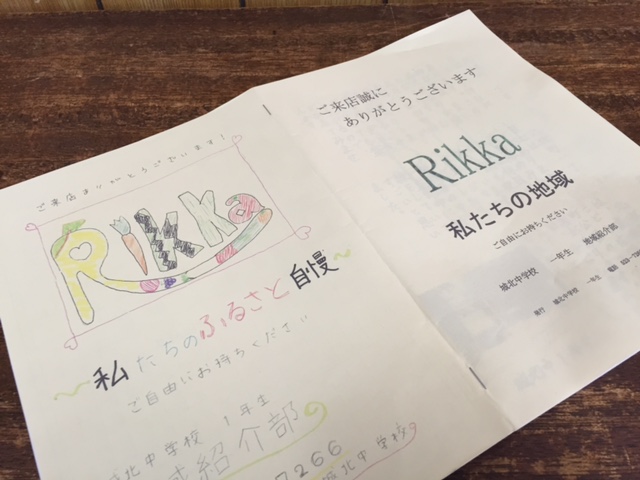 ご来店ありがとうございます!
Rikka
~私たちのふるさと自慢~
ご自由にお持ちください
城北中学校 1年生
域紹介部
7266
城北中学校
ご来店誠に
ありがとうございます
Rikka
私たちの地域
ご自由にお持ちください
城北中学校 一年生 地域紹介部
発行 城北中学校 一年生 電話